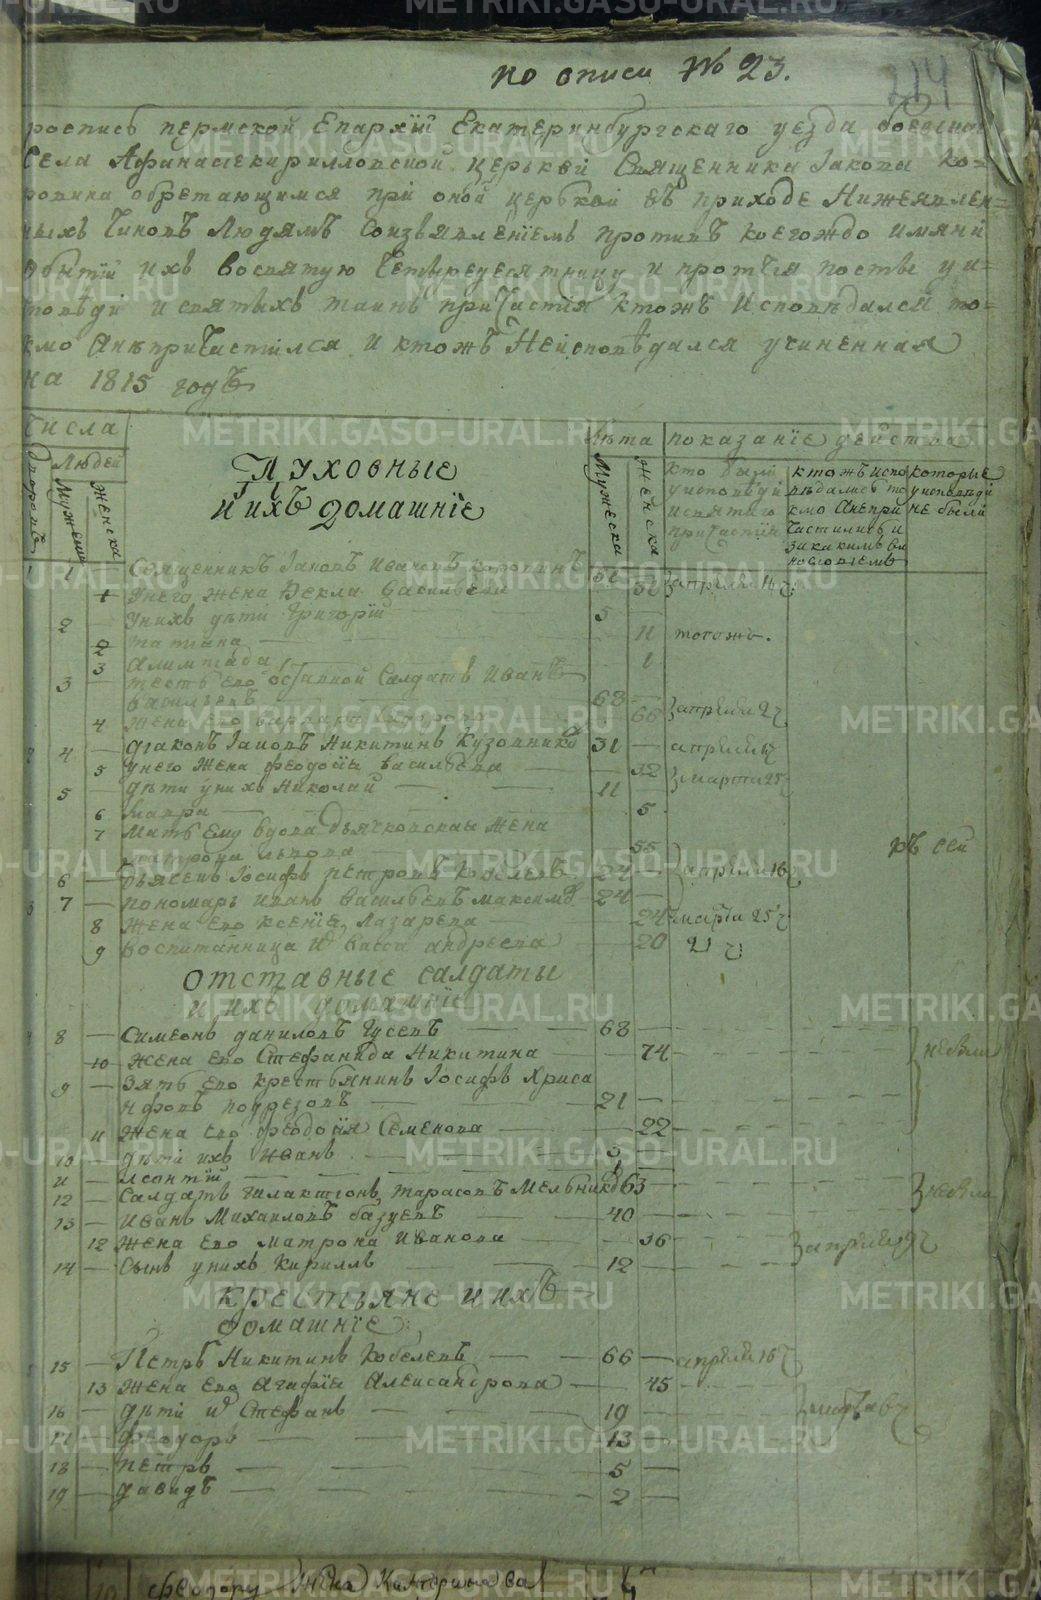 по описи № 23.
214
роспись пермской Епархiи Екатеринбургскаго уезда
Села Афанасiекирилловской церькви Священника Iакова Ко-
ровина обретающимся при оной церькви въ приходе Нижеявлен-
ныхъ Чиновъ Людямъ Соизъявленiемъ противъ коегождо имяни
Обытiи ихъ Восвятую Четыредесятницу и протчiя посты уи-
поведi исвятыхъ таинъ причастiя ктожъ Исповедался то-
кмо Анепричастился и ктожъ Неисповѣдался учиненная
на 1815 годъ
Числа
Людей
Мужеска
Женска
Духовные
и ихъ домашнiе
Лѣта
Мужеска
Женска
показанiе действа
кто были уисповѣди исвятаго причастiя
ктожъ испо вѣдались то кмо Анепри частились и закакимъ ви нословiемъ
которые уисповѣди не были
1 Священникъ Iаковъ Ивановъ коровинъ 51
1 Унего жена Фекла Васильева 52 апреля 16 ч:
2 Унихъ дѣти Григорiй 5
2 татiана 11 тогожъ.
3 Алимпiада 1
3 тесть его отставной Салдатъ Иванъ
Васильевъ 68
4 Жена его варвара 66 апреля 2 ч
4 дiаконъ Iаковъ Никитинъ Кузовниковъ 31 апреля
5 Унего Жена феодосiя васильева 32 марта 25 ч
5 дѣти унихъ Николай 11
6 Мавра 5
7 Мать ему вдова дьячковская Жена
матрона львова 55
6 дьячекъ Iосифъ петровъ Кобелевъ 24 апреля 16 ч
7 пономарь иванъ васильевъ максимов 24
8 Жена его ксенiя Лазарева 24 марта 25 ч
9 воспитанница васса андреева 20 21 ч
отставные салдаты
и ихъ домашнiе
8 Симеонъ даниловъ Гусевъ 68
10 Жена его Стефанида Никитина 74 небыли
9 Зять его крестьянинъ Iосифъ Хриса
нфовъ подрезовъ 21
11 Жена его феодосiя Семенова 22
10 дѣти ихъ Иванъ 3
11 леонтiй 1
12 Салдатъ галактiонъ тарасовъ Мельников 63 небыли
13 иванъ Михаиловъ базуевъ 40
12 Жена его матрона Иванова 36 апреля 19 ч
14 Сынъ унихъ Кириллъ 12
крестьяне и ихъ
домашнiе:
15 Петръ Никитинъ Кобелевъ 66 апреля 16 ч
13 Жена его Агафiя Александрова 45
16 дѣти Стефанъ 19
17 феодоръ 13
18 петръ 5
19 давидъ 2
феодору Жена Катерина
METRIKI.GASO-URAL.RU